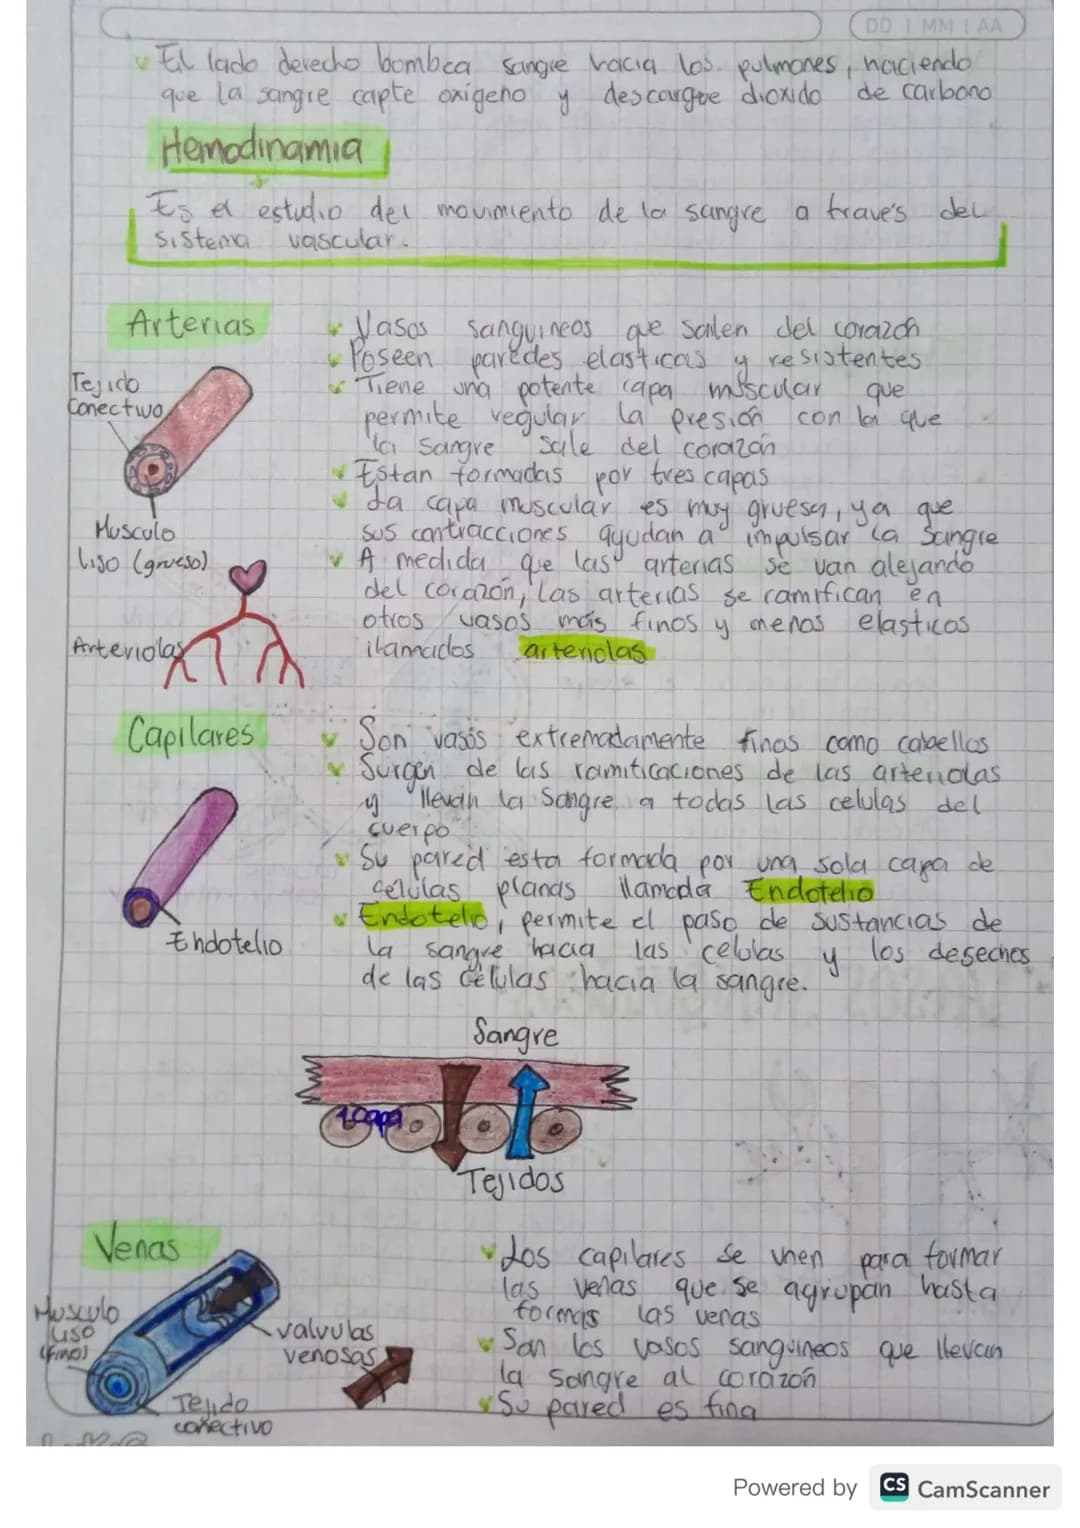 DD | MM | AA
El lado derecho bombea sangre hacia los pulmones, haciendo
que la sangre capte oxigeno y descargue dioxido de carbono
Hemodinamia
Es el estudio del movimiento de la sangre a través del
sistema vascular.
Arterias
Tejido
Conectivo
Musculo
liso (grueso)
Arteriolas
Vasos sanguineos que salen del corazón
Poseen paredes elasticas y resistentes
Tiene una potente capa muscular que
permite regular la presión con la que
la sangre sale del corazón
Estan formadas por tres capas
La capa muscular es muy gruesa, ya que
sus contracciones ayudan a impulsar la sangre
A medida que las arterias se van alejando
del corazón, las arterias se ramifican en
otros vasos más finos y menos elasticos
llamados arteriolas
Capilares
Endotelio
Son vasos extremadamente finos como cabellos
Surgen de las ramificaciones de las arteriolas
y llevan la sangre a todas las celulas del
cuerpo
Su pared esta formada por una sola capa de
células planas llamada Endotelio
Endotelio, permite el paso de sustancias de
la sangre hacia las celulas y los desechos
de las células hacia la sangre.
Sangre
1 capa
Tejidos
Venas
Musculo
liso
(fino)
valvulas
venosas
Tejido
conectivo
Los capilares se unen para formar
las venas que se agrupan hasta
formas las venas
Son los vasos sanguineos que llevan
la sangre al corazón
Su pared es fina
Powered by CS CamScanner